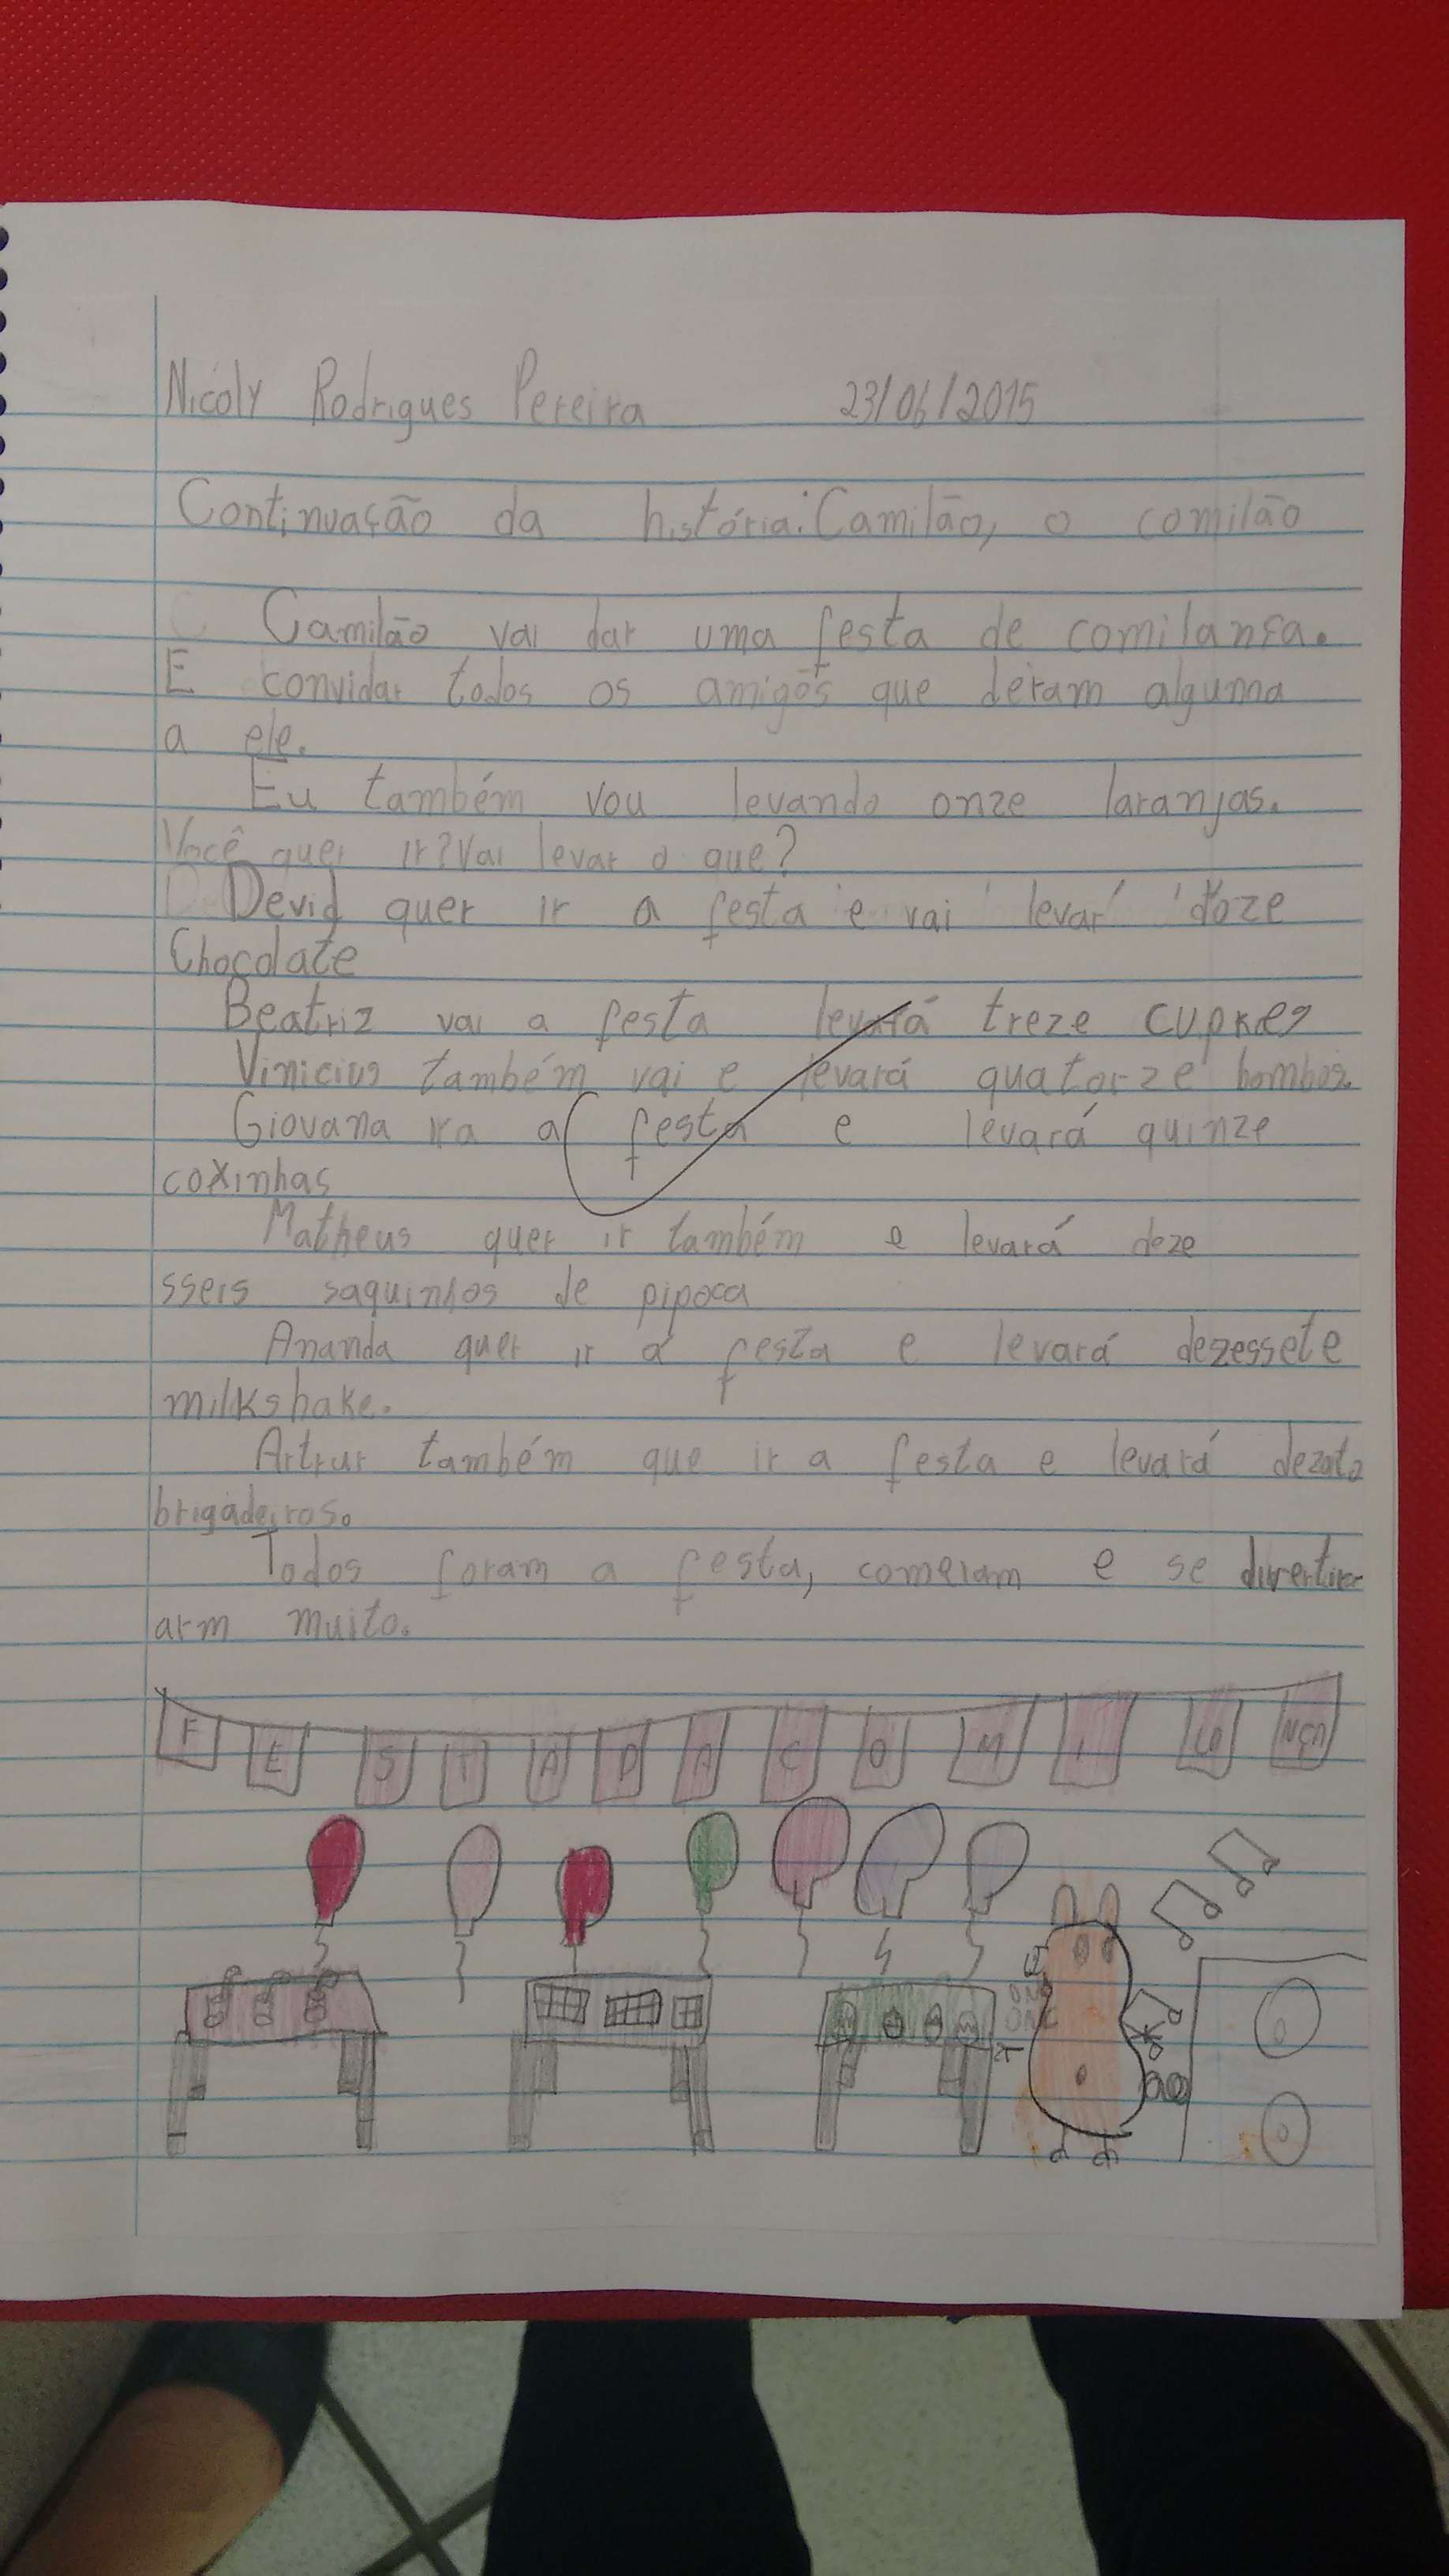 Nicoly Rodrigues Pereira 23/06/2015
Continuação da história: Camilão, o comilão
Camilão vai dar uma festa de comilansa.
E convidar todos os amigos que deram alguma
a ele.
Eu também vou levando onze laranjas.
Você quer ir? Vai levar o que?
Devid quer ir a festa e vai levar doze
Chocolate
Beatriz vai a festa levará treze cupkes
Vinicius também vai e levará quatorze bombos.
Giovana ira a festa e levará quinze
coxinhas
Matheus quer ir também e levará deze
sseis saquinhos de pipoca
Ananda quer ir a festa e levará dezessete
milkshake.
Artrur também que ir a festa e levará dezoto
brigadeiros.
Todos foram a festa, comeram e se divertir
arm muito.
F E S T A D A C O M I LA NÇA